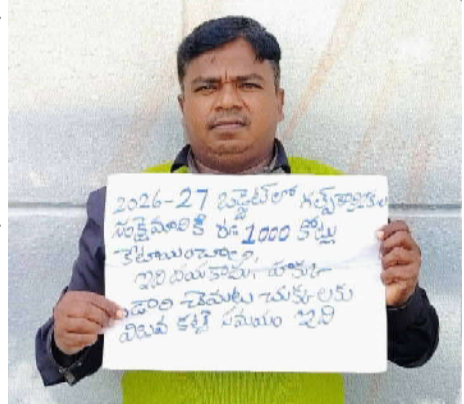 2026-27 బడ్జెట్‌లో గల్ఫ్ కార్మికుల
సంక్షేమానికి రూ 1000 కోట్లు
కేటాయించాలి,
ఇది దయ కాదు, హక్కు
వారి చెమటు చుక్కలకు
విలువ కట్టే సమయం ఇది